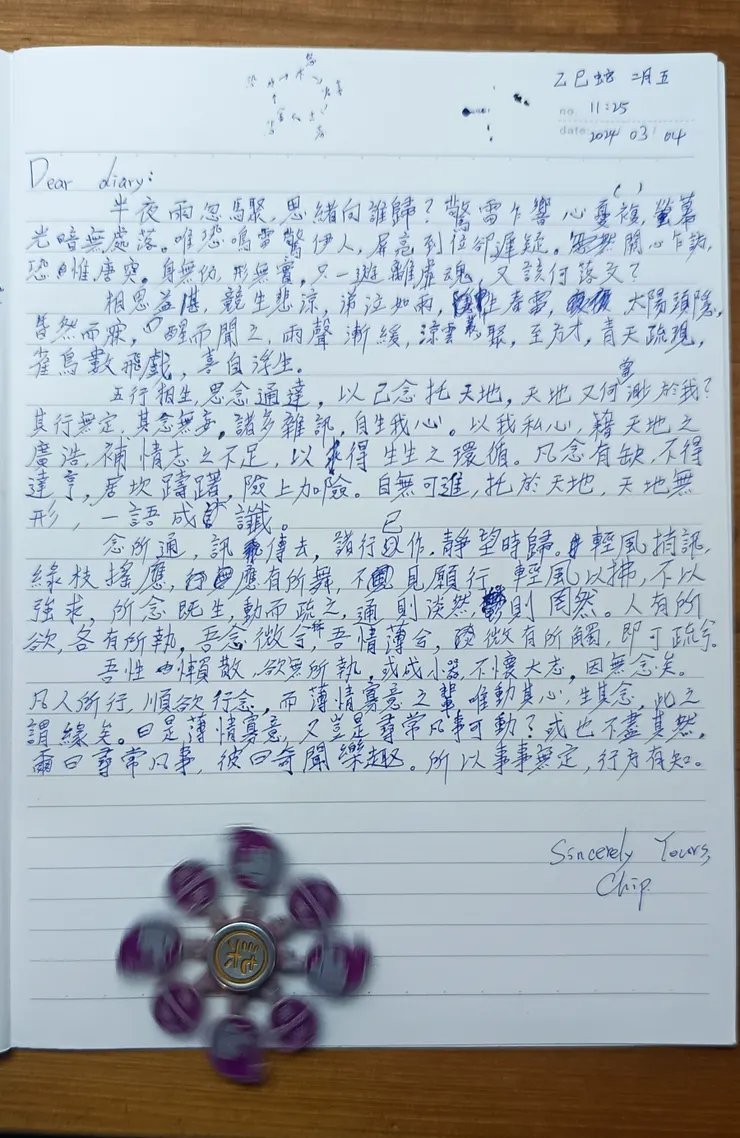 乙巳蛇 二月五
no. 11:25
date 2024 03 04
Dear diary:
半夜雨忽驟聚,思緒向誰歸?驚雷乍響心憂複,螢萬
光暗無處落。唯恐鳴雷驚伊人,屏亮到位卻遲疑。關心乍訪,
恐惟唐突。身無仂,形無實,只一遊離虛魂,又該何落交?
相思益堪,競生悲涼,涕泣如雨,生春雷,太陽頭隱,
皆然而寐,醒而聞之,雨聲漸緩,涼雲聚,至方才,青天疏現,
雀鳥數飛戲,喜自浮生。
五行相生,思念通達,以己念托天地,天地又何嘗測於我?
其行無定,其念無妄,諸多雜訊,自生我心。以我私心,藉天地之
廣浩,補情志之不足,以求得生生之環循。凡念有缺,不得
達亨,居坎躊躇,險上加險。自無可進,托於天地,天地無
形,一語成讖。
念所通,訊傳去,諸行已作,靜望時歸。輕風捎訊,
緣枝搖應,應有所舞,不見願行,輕風以拂,不以
強求,所念既生,動而疏之,通則淡然,則罔然。人有所
欲,各有所執,吾念微兮,吾情薄兮,微有所觸,即可疏兮。
吾性懶散,欲無所執,或成小器,不懷大志,因無念矣。
凡人所行,順欲行念,而薄情寡意之輩唯動其心,生其念,此之
謂緣矣。曰是薄情寡意,又豈是尋常凡事可動?或也不盡其然,
爾曰尋常凡事,彼曰奇聞樂趣。所以事事無定,行方有知。
Sincerely Yours,
Chip